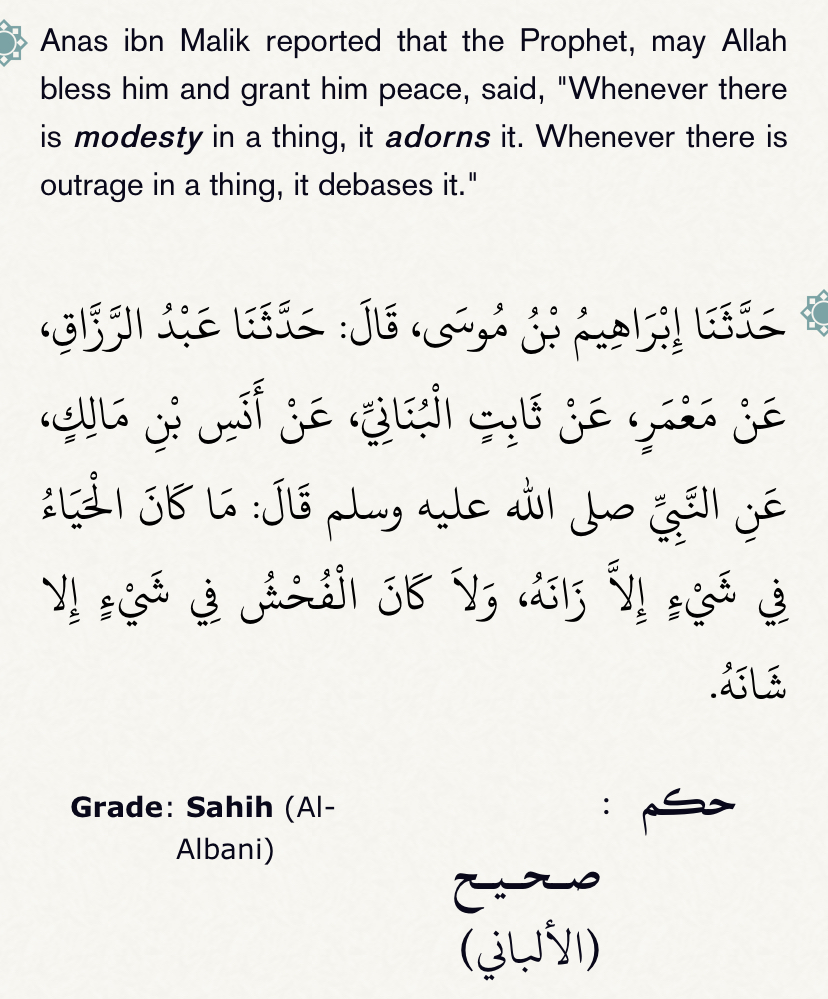 Anas ibn Malik reported that the Prophet, may Allah
bless him and grant him peace, said, "Whenever there
is modesty in a thing, it adorns it. Whenever there is
outrage in a thing, it debases it."
حَدَّثَنَا إِبْرَاهِيمُ بْنُ مُوسَى، قَالَ: حَدَّثَنَا عَبْدُ الرَّزَّاقِ،
عَنْ مَعْمَرٍ، عَنْ ثَابِتٍ الْبُنَانِيِّ، عَنْ أَنَسِ بْنِ مَالِكٍ،
عَنِ النَّبِيِّ صلى الله عليه وسلم قَالَ: مَا كَانَ الْحَيَاءُ
فِي شَيْءٍ إِلاَّ زَانَهُ، وَلاَ كَانَ الْفُحْشُ فِي شَيْءٍ إِلا
شَانَهُ.
Grade: Sahih (Al-
Albani)
حكم :
صـحـيـح
(الألباني)